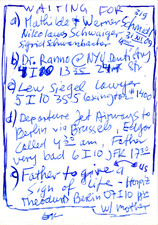 WAITING FOR
a) Mathilde + Werner Schmidt
Nikolaus Schwaiger
Sigrid Schwanbacher
b) Dr. Ranno @ NYU Dentistry
4 I 10 13 35 24th Str.
c) Lew Siegel lawyer
5 I 10 35 95 Lexington # 1400
d) Departure Jet Airways to
Berlin via Brussels, Edgar
called 4 30 am. Father
very bad 6 I 10 JFK 17 30
e) Father to give a
sign of life - Hospiz
Theodorus Berlin 07 I 10
w/ mother